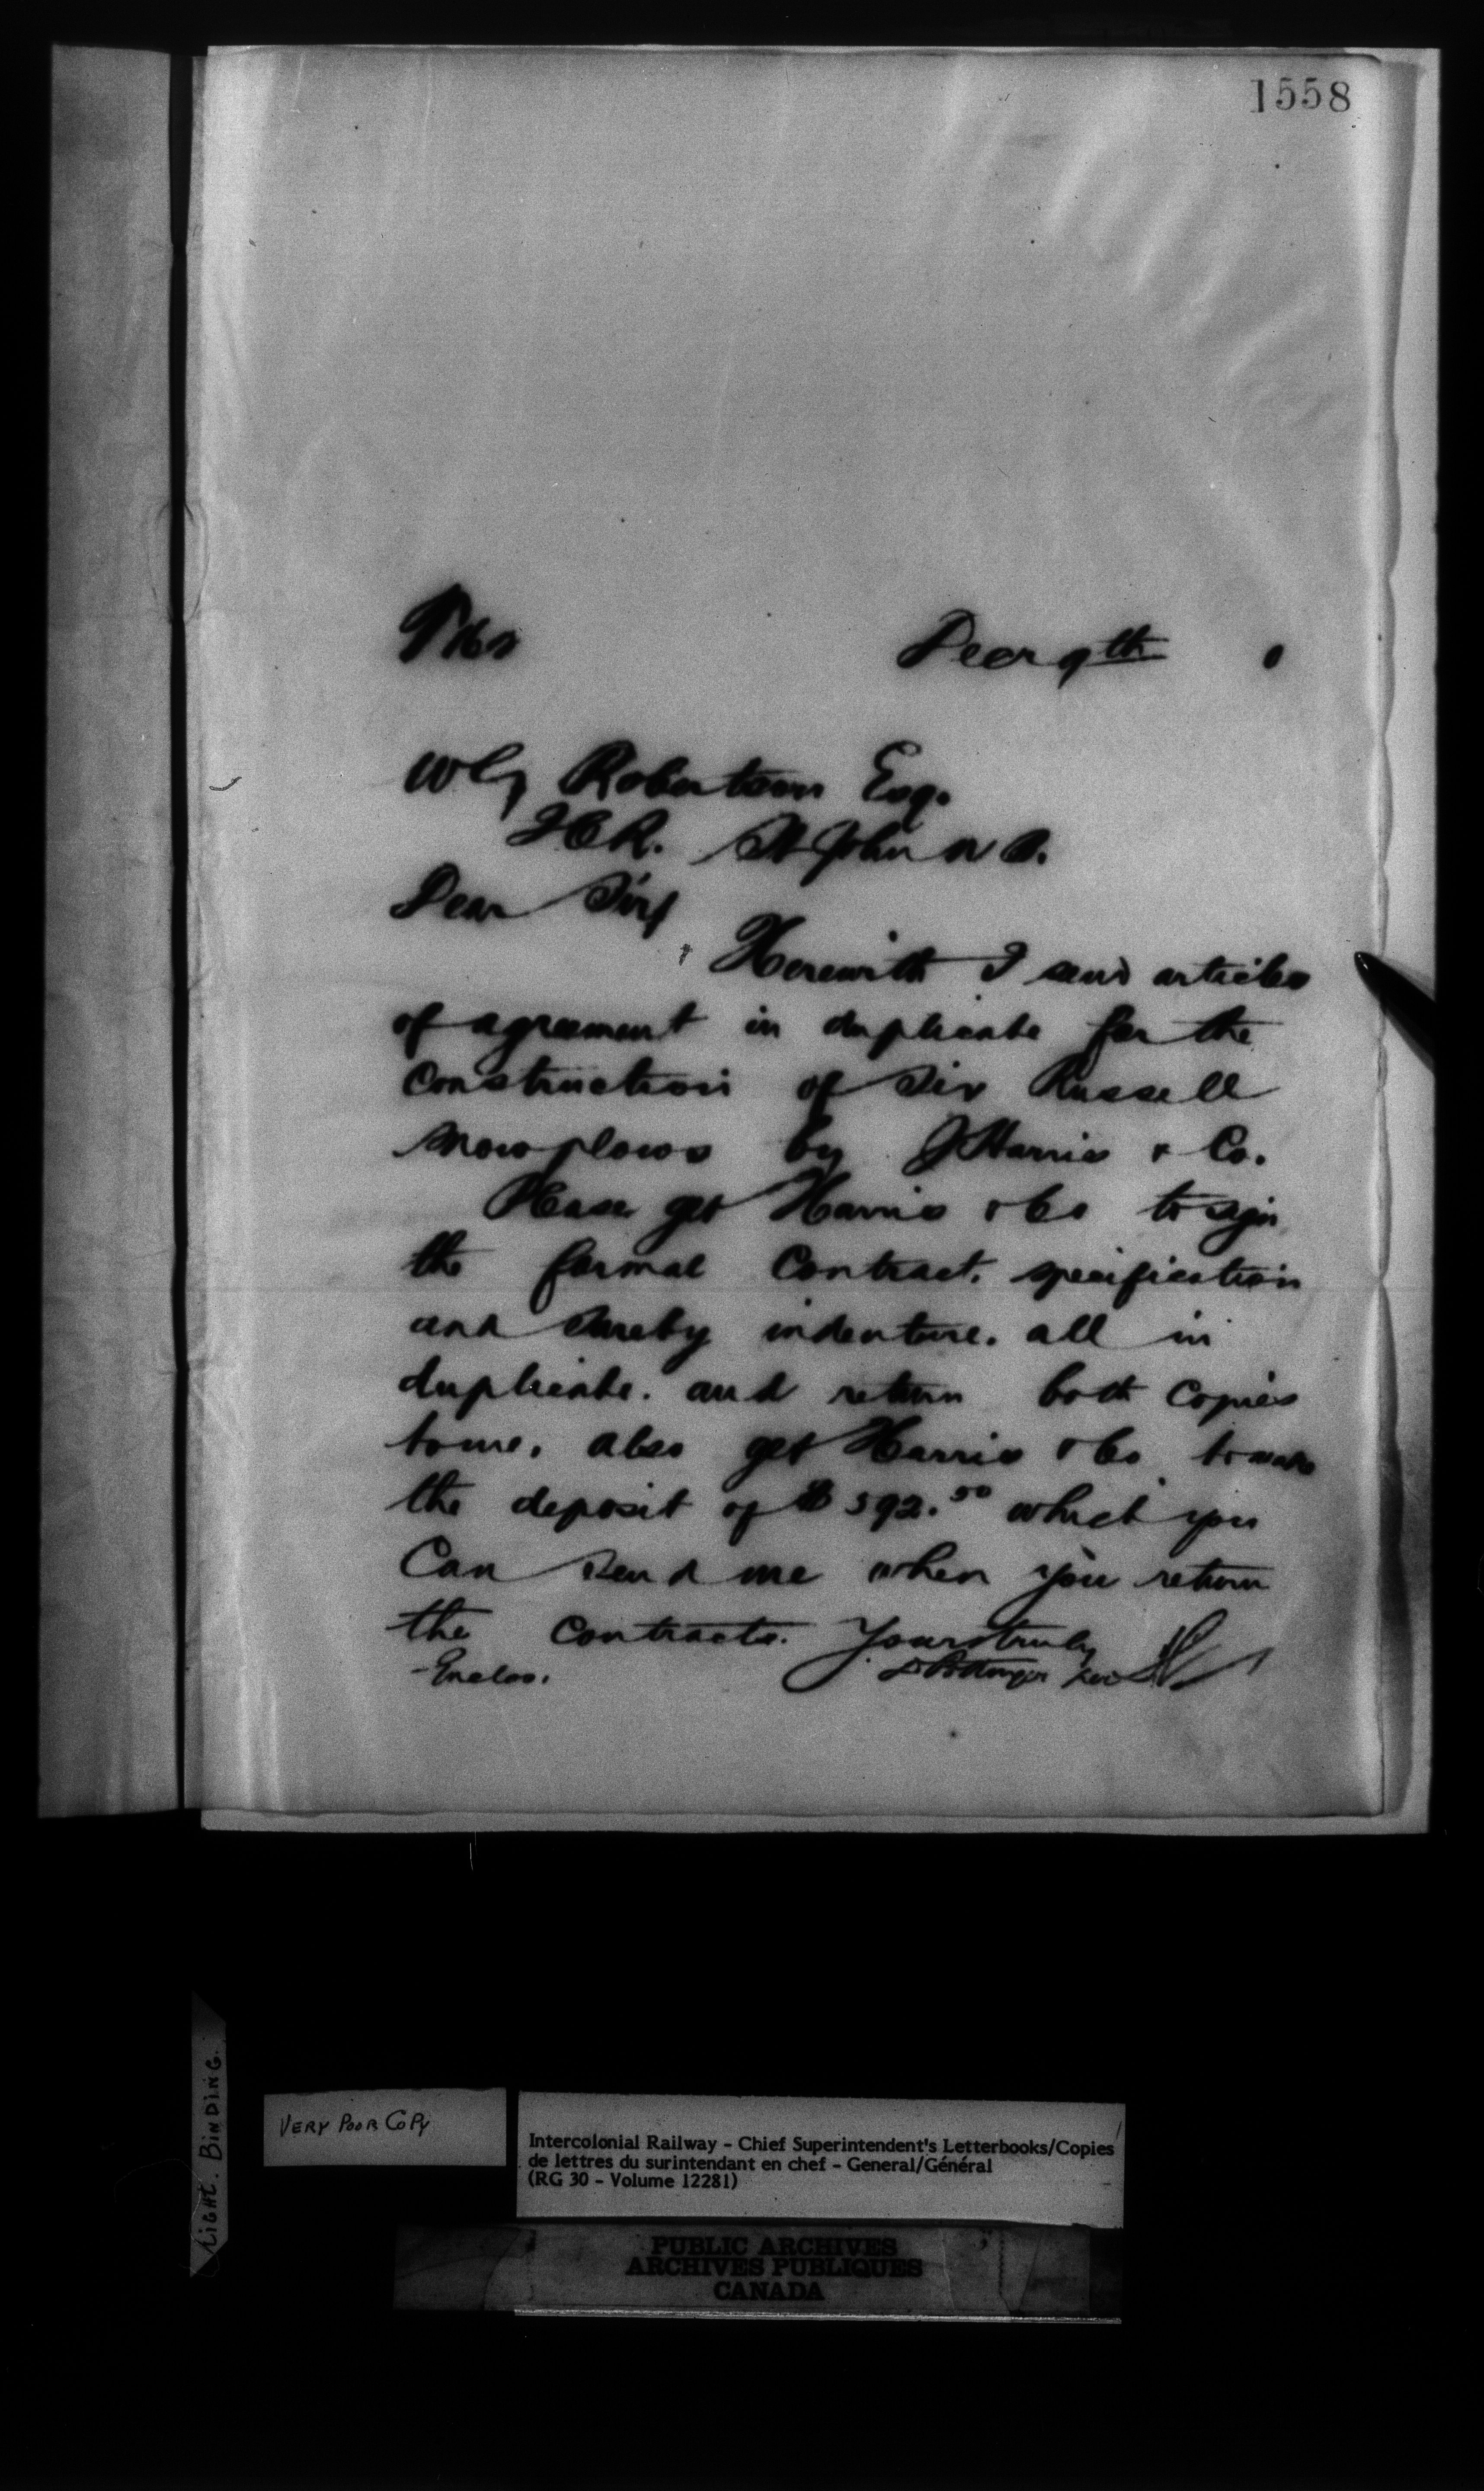 1558
Decr 9th
Robertson Esq.
ICR. St John N B.
Dear Sir/
Herewith I send articles
of agreement in duplicate for the
construction of Six Russell
Snowplows by J Harris & Co.
Please get Harris & Co to sign
the formal Contract. specification
and Surety indenture. all in
duplicate. and return both copies
to me. also get Harris & Co to make
the deposit of $592.50 which you
Can send me when you return
the Contracts. Yours truly
Enclos. D Pottinger
LIGHT. BINDING.
VERY POOR COPY
Intercolonial Railway - Chief Superintendent's Letterbooks/Copies
de lettres du surintendant en chef - General/Général
(RG 30 - Volume 12281)
PUBLIC ARCHIVES
ARCHIVES PUBLIQUES
CANADA